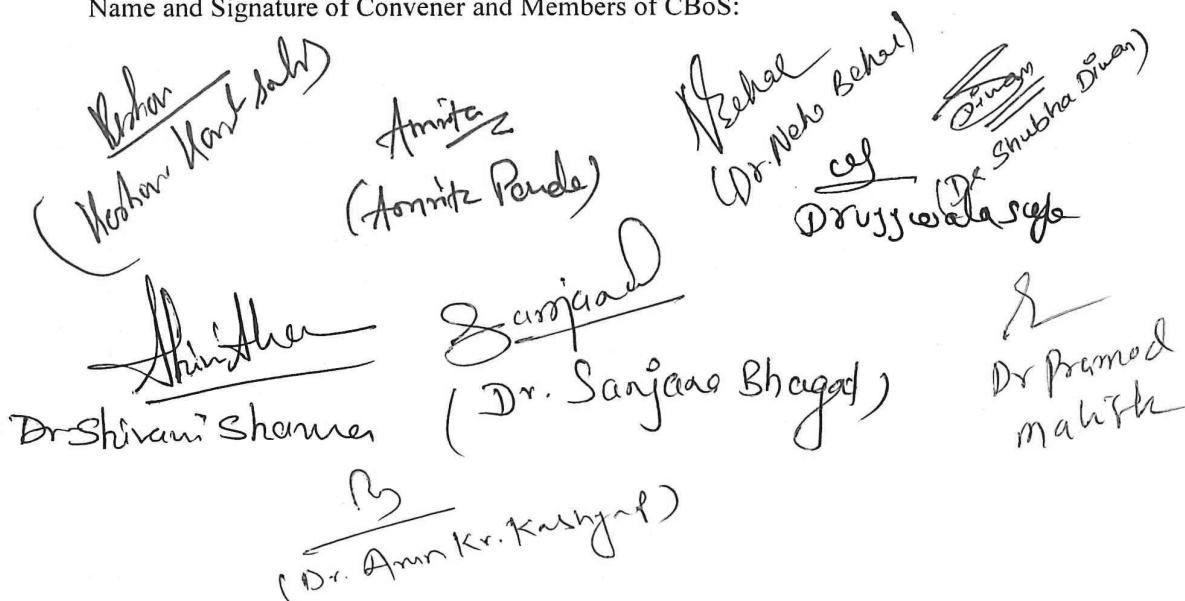 Name and Signature of Convener and Members of CBoS:
Keshav
(Keshav Kant Sahu)
Amrita
(Amrita Pande)
NBehal
(Dr. Neha Behal)
Diwan
(Dr Shubha Diwan)
Dr Ujjwala
Dr Shivani Sharma
Sanjana
(Dr. Sanjana Bhagat)
Dr Pramod
Mahish
(Dr. Arun Kr. Kashyap)